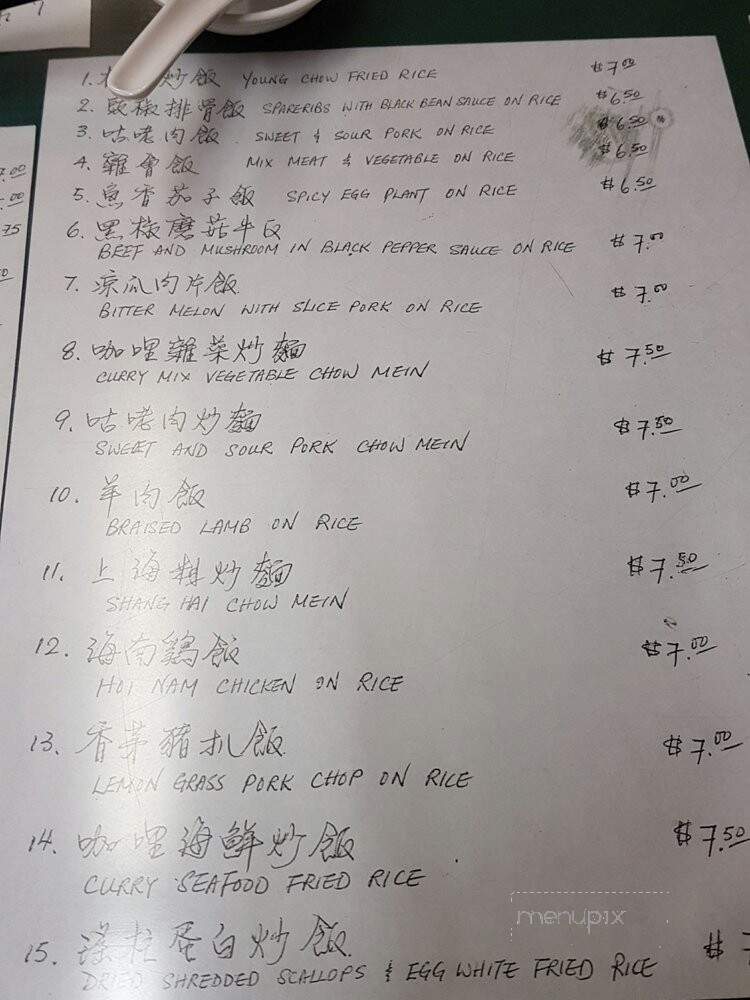 1. 炒飯 YOUNG CHOW FRIED RICE $7.00
2. 豉椒排骨飯 SPARERIBS WITH BLACK BEAN SAUCE ON RICE $6.50
3. 咕咾肉飯 SWEET & SOUR PORK ON RICE $6.50
4. 雜會飯 MIX MEAT & VEGETABLE ON RICE $6.50
5. 魚香茄子飯 SPICY EGG PLANT ON RICE $6.50
6. 黑椒磨菇牛
BEEF AND MUSHROOM IN BLACK PEPPER SAUCE ON RICE $7.00
7. 涼瓜肉片飯
BITTER MELON WITH SLICE PORK ON RICE $7.00
8. 咖哩雜菜炒麵
CURRY MIX VEGETABLE CHOW MEIN $7.50
9. 咕咾肉炒麵
SWEET AND SOUR PORK CHOW MEIN $7.50
10. 羊肉飯
BRAISED LAMB ON RICE $7.00
11. 上海粗炒麵
SHANG HAI CHOW MEIN $7.50
12. 海南鷄飯
HOI NAM CHICKEN ON RICE $7.00
13. 香茅豬扒飯
LEMON GRASS PORK CHOP ON RICE $7.00
14. 咖哩海鮮炒飯
CURRY SEAFOOD FRIED RICE $7.50
15. 瑤柱蛋白炒飯
DRIED SHREDDED SCALLOPS & EGG WHITE FRIED RICE $
7.00
.00
.75
menupix